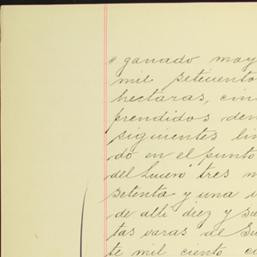 ganado may
mil setecuento
hectaras, cin
prendidos den
siguientes lin
do en el punto
del Lucero tres m
setenta y una
de alli diez y si
tas varas al Su
te mil ciento